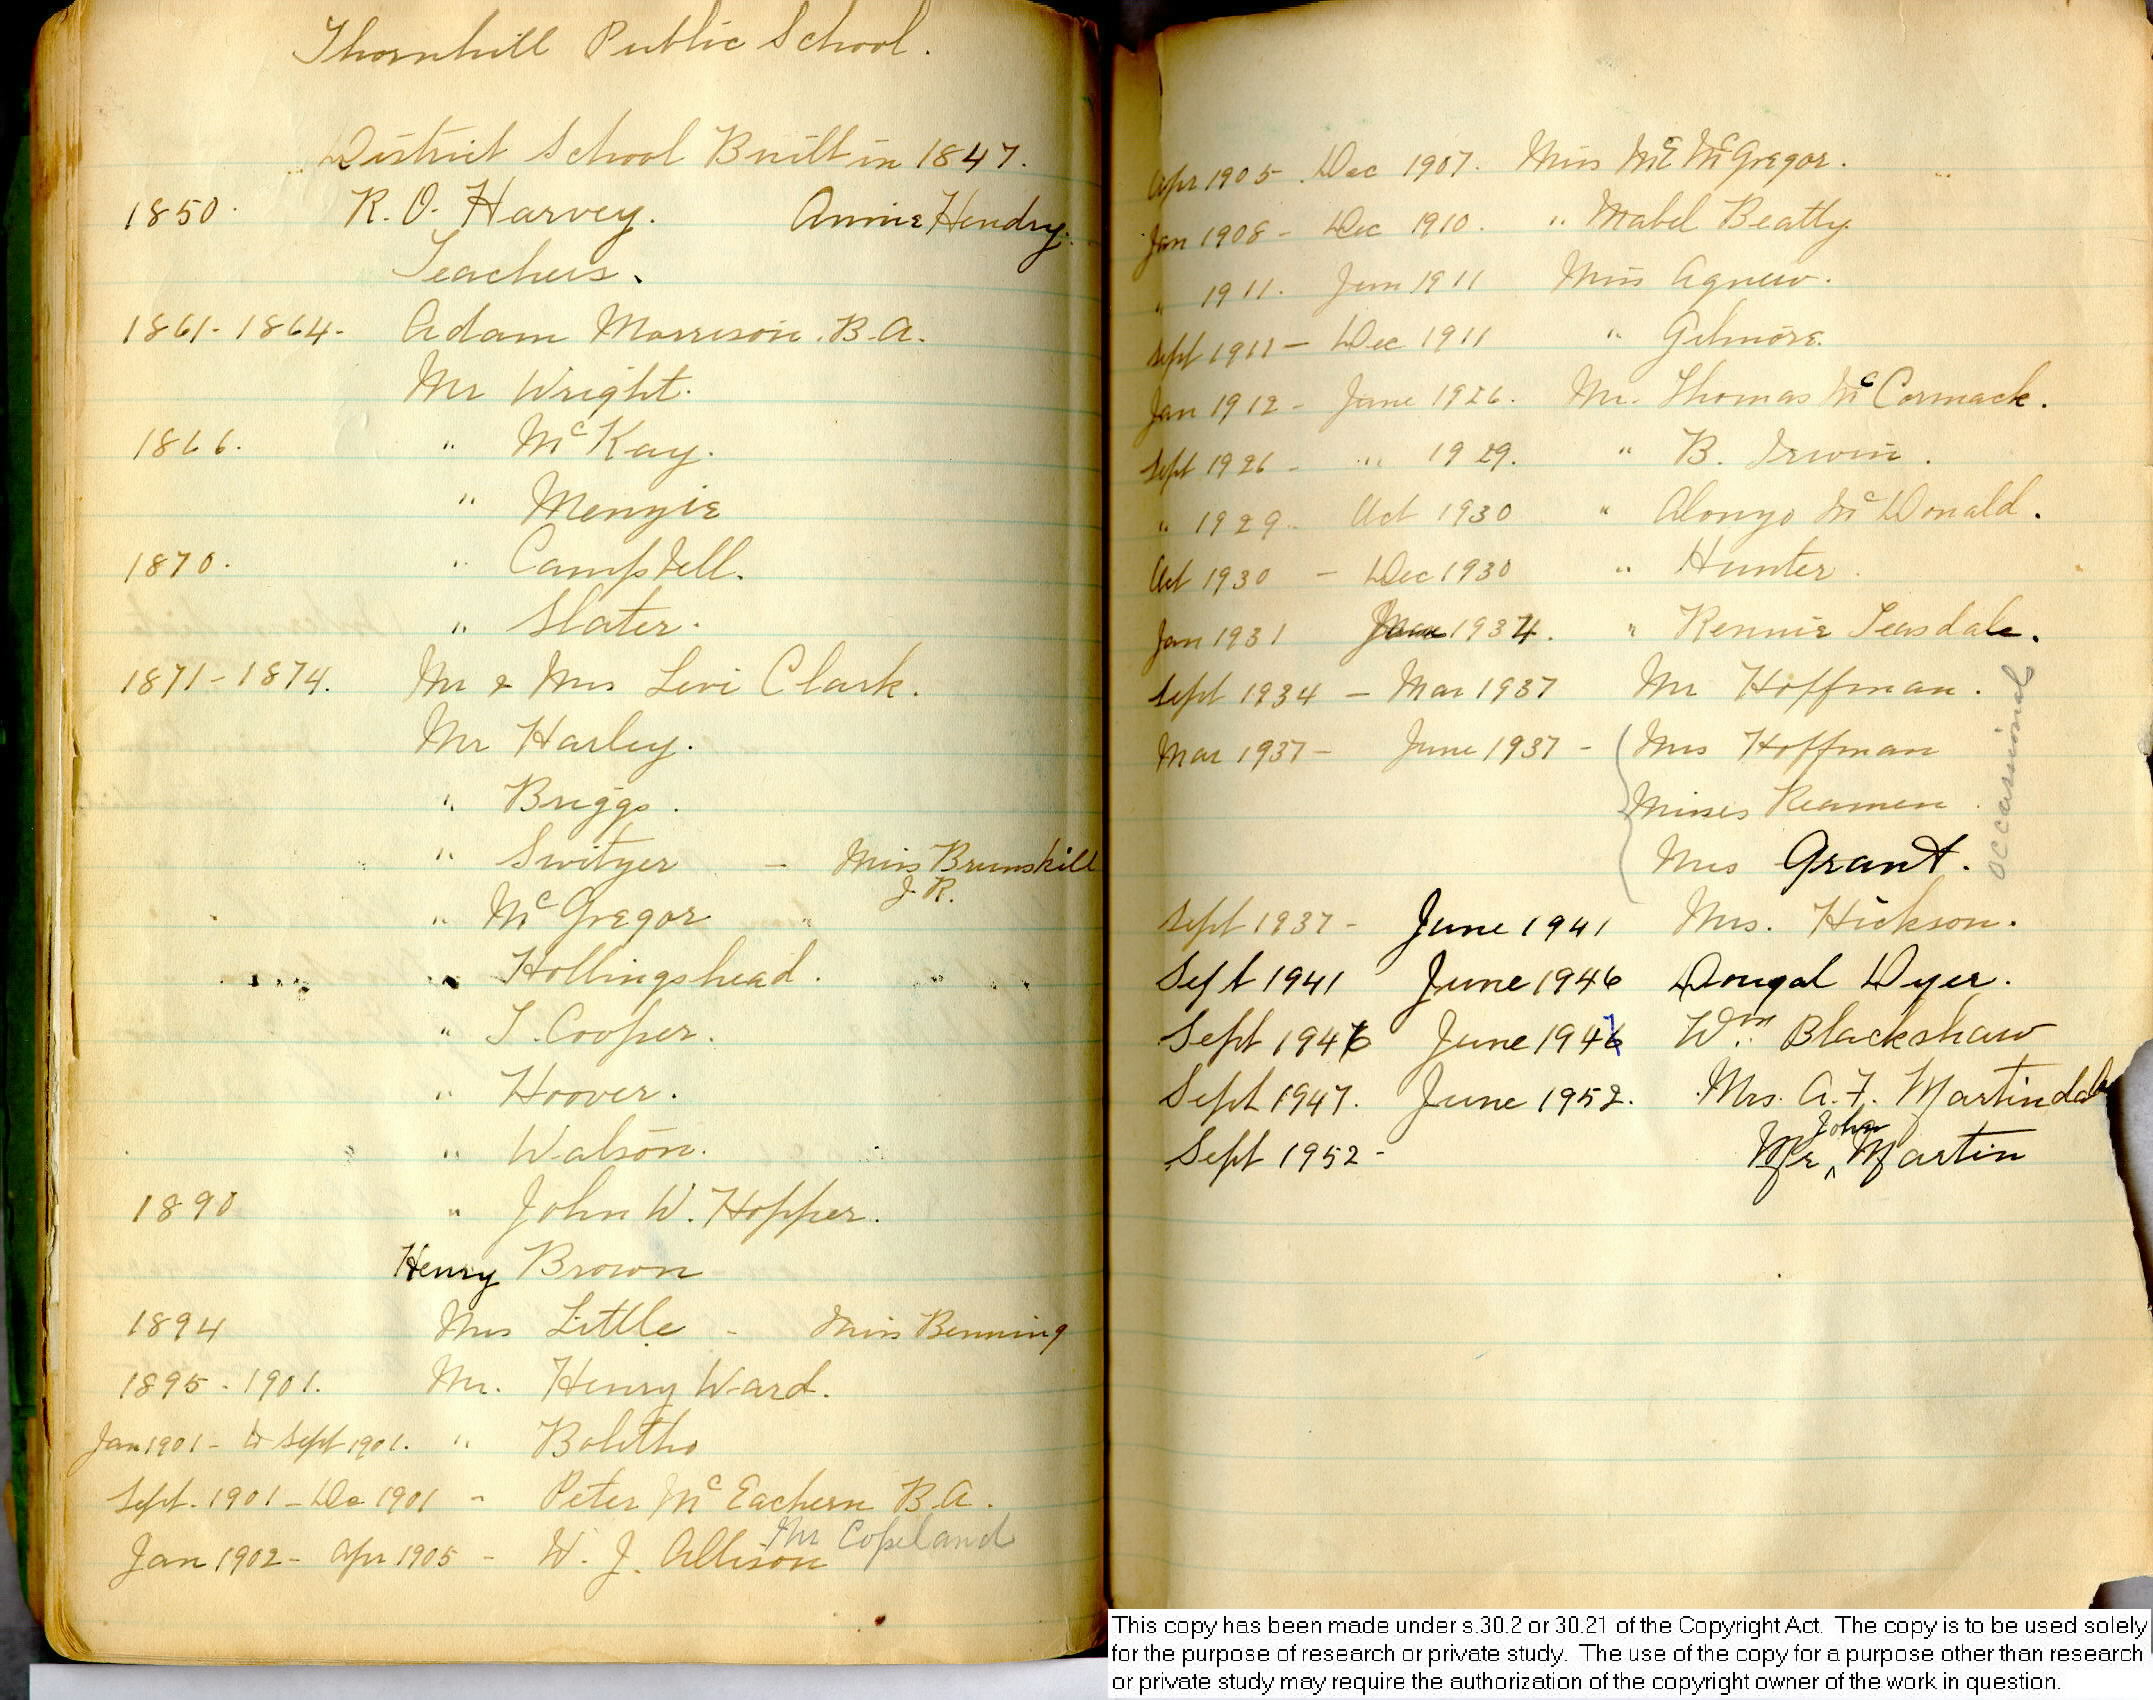 Thornhill Public School.
District School Built in 1847.
1850. R. O. Harvey. Annie Hendry.
Teachers.
1861-1864- Adam Morrison. B.A.
Mr Wright.
1866. " McKay.
" Menzie
1870. " Campbell.
" Slater.
1871-1874. Mr & Mrs Levi Clark.
Mr Harley.
" Briggs.
" Switzer - Miss Brunskill
J.R.
" McGregor "
" Hollingshead.
" T. Cooper.
" Hoover.
" Watson.
1890 " John W. Hopper.
Henry Brown
1894 Mrs Little - Miss Benning
1895-1901. Mr. Henry Ward.
Jan 1901- to Sept 1901. " Bolitho
Sept. 1901-Dec 1901 - Peter McEachern B.A.
Mr Copeland
Jan 1902- Apr 1905 - W. J. Allison
Apr 1905- Dec 1907. Miss McGregor.
Jan 1908- Dec 1910. " Mabel Beatty.
" 1911. Jun 1911 Miss Agnew.
Sept 1911- Dec 1911 " Gilmore.
Jan 1912- June 1926. Mr. Thomas McCormack.
Sept 1926- " 1929. " B. Irwin.
" 1929. Oct 1930 " Alonzo McDonald.
Oct 1930 - Dec 1930 " Hunter.
Jan 1931 June 1934. " Rennie Teasdale.
Sept 1934 - Mar 1937 Mr Hoffman.
Mar 1937- June 1937- Mrs Hoffman
Misses Reamen
Mrs Grant.
occasionals
Sept 1937- June 1941 Mrs. Hickson.
Sept 1941 June 1946 Dougal Dyer.
Sept 1946 June 1947 Wm. Blackshaw
Sept 1947. June 1952. Mrs. A. F. Martindale
John
Sept 1952- Mr ^ Martin
This copy has been made under s.30.2 or 30.21 of the Copyright Act. The copy is to be used solely
for the purpose of research or private study. The use of the copy for a purpose other than research
or private study may require the authorization of the copyright owner of the work in question.